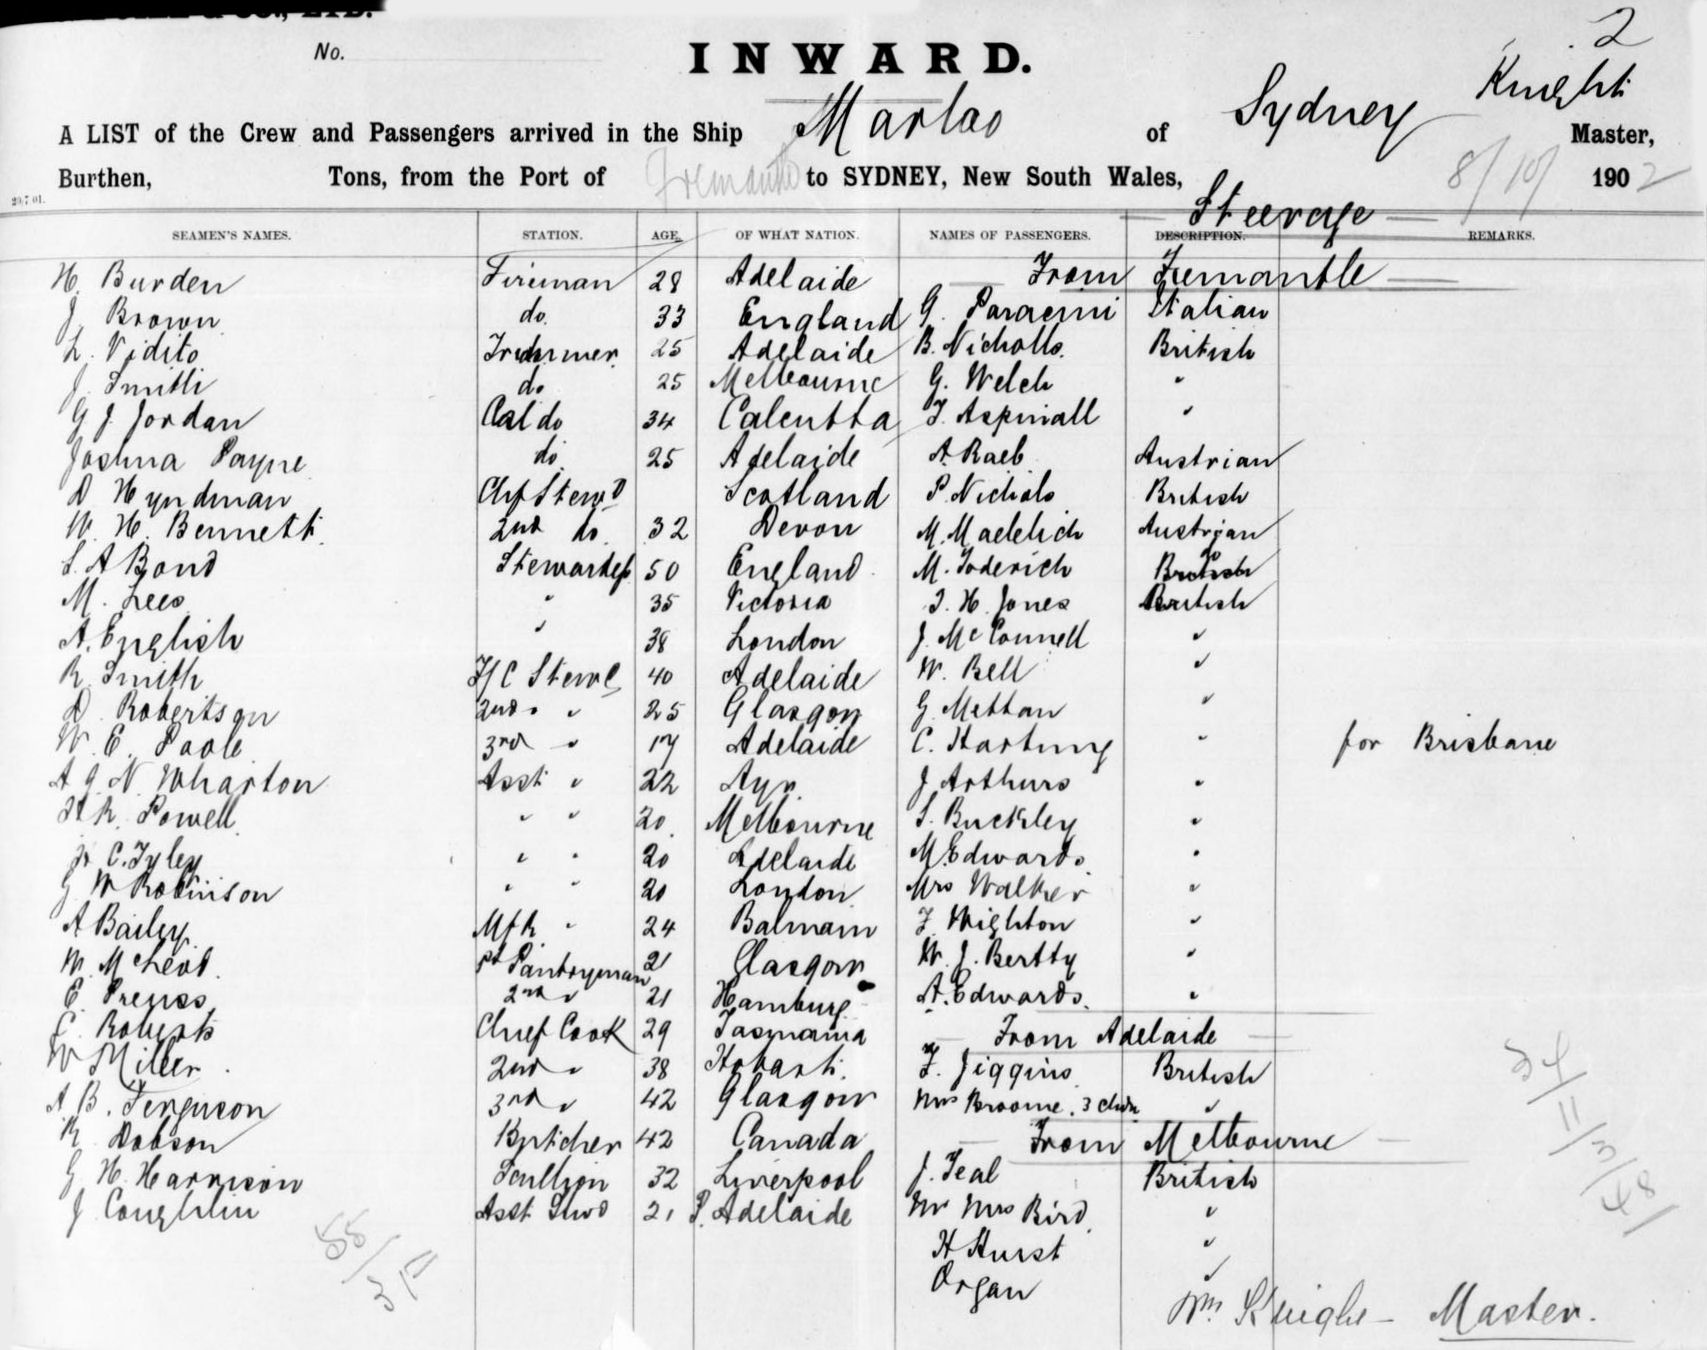 & CO., LTD.
2
No.
INWARD.
Knight
A LIST of the Crew and Passengers arrived in the Ship Marloo of Sydney Master,
Burthen, Tons, from the Port of Fremantle to SYDNEY, New South Wales, 8/10/ 1902
29.7 01.
Steerage
SEAMEN'S NAMES. STATION. AGE. OF WHAT NATION. NAMES OF PASSENGERS. DESCRIPTION. REMARKS.
H. Burden Fireman 28 Adelaide From Fremantle
J. Brown do. 33 England G. Italian
L. Vidito Trimmer 25 Adelaide B. Nicholls. British
J. Smith do 25 Melbourne G. Welch "
G J Jordan do 34 Calcutta T. Aspinall "
Joshua Payne do 25 Adelaide A. Raeb Austrian
D Hyndman Chf Stewd Scotland P. Nichols British
W. H. Bennett. 2nd do. 32 Devon M. Austrian
S. A Bond Stewardess 50 England M. do
M. Lees " 35 Victoria T. H. Jones British
A. English " 38 London J. McConnell "
R. Smith F/C Stewd 40 Adelaide W. Bell "
D. Robertson 2nd " " 25 Glasgow G. Mettan "
W. E. Poole 3rd " 17 Adelaide C. Hartung " for Brisbane
A. G. N. Wharton Asst. " 22 Ayr. J Arthurs "
H R. Powell " " 20. Melbourne S. Buckley "
C. Tyley " " 20 Adelaide M. Edwards "
G W Robinson " " 20 London Mrs Walker "
A Bailey M/R " 24 Balmain F. Wighton "
M. McLeod. 1st Pantryman 21 Glasgow W. J. Bertty "
E. Preuss 2nd " 21 Hamburg A. Edwards. "
C. Roberts Chief Cook 29 Tasmania From Adelaide
W Miller 2nd " 38 Hobart. F. Jiggins British
A B. Ferguson 3rd " 42 Glasgow Mrs Broome. 3 chdn "
R. Dobson Butcher 42 Canada From Melbourne
G. H. Harrison Scullion 32 Liverpool J. Teal British
J Coughlin Asst Stwd 21 P. Adelaide Mr Mrs Bird. "
H Hurst "
Organ "
55/3/
24/11/3/48/
Wm. Knight - Master.